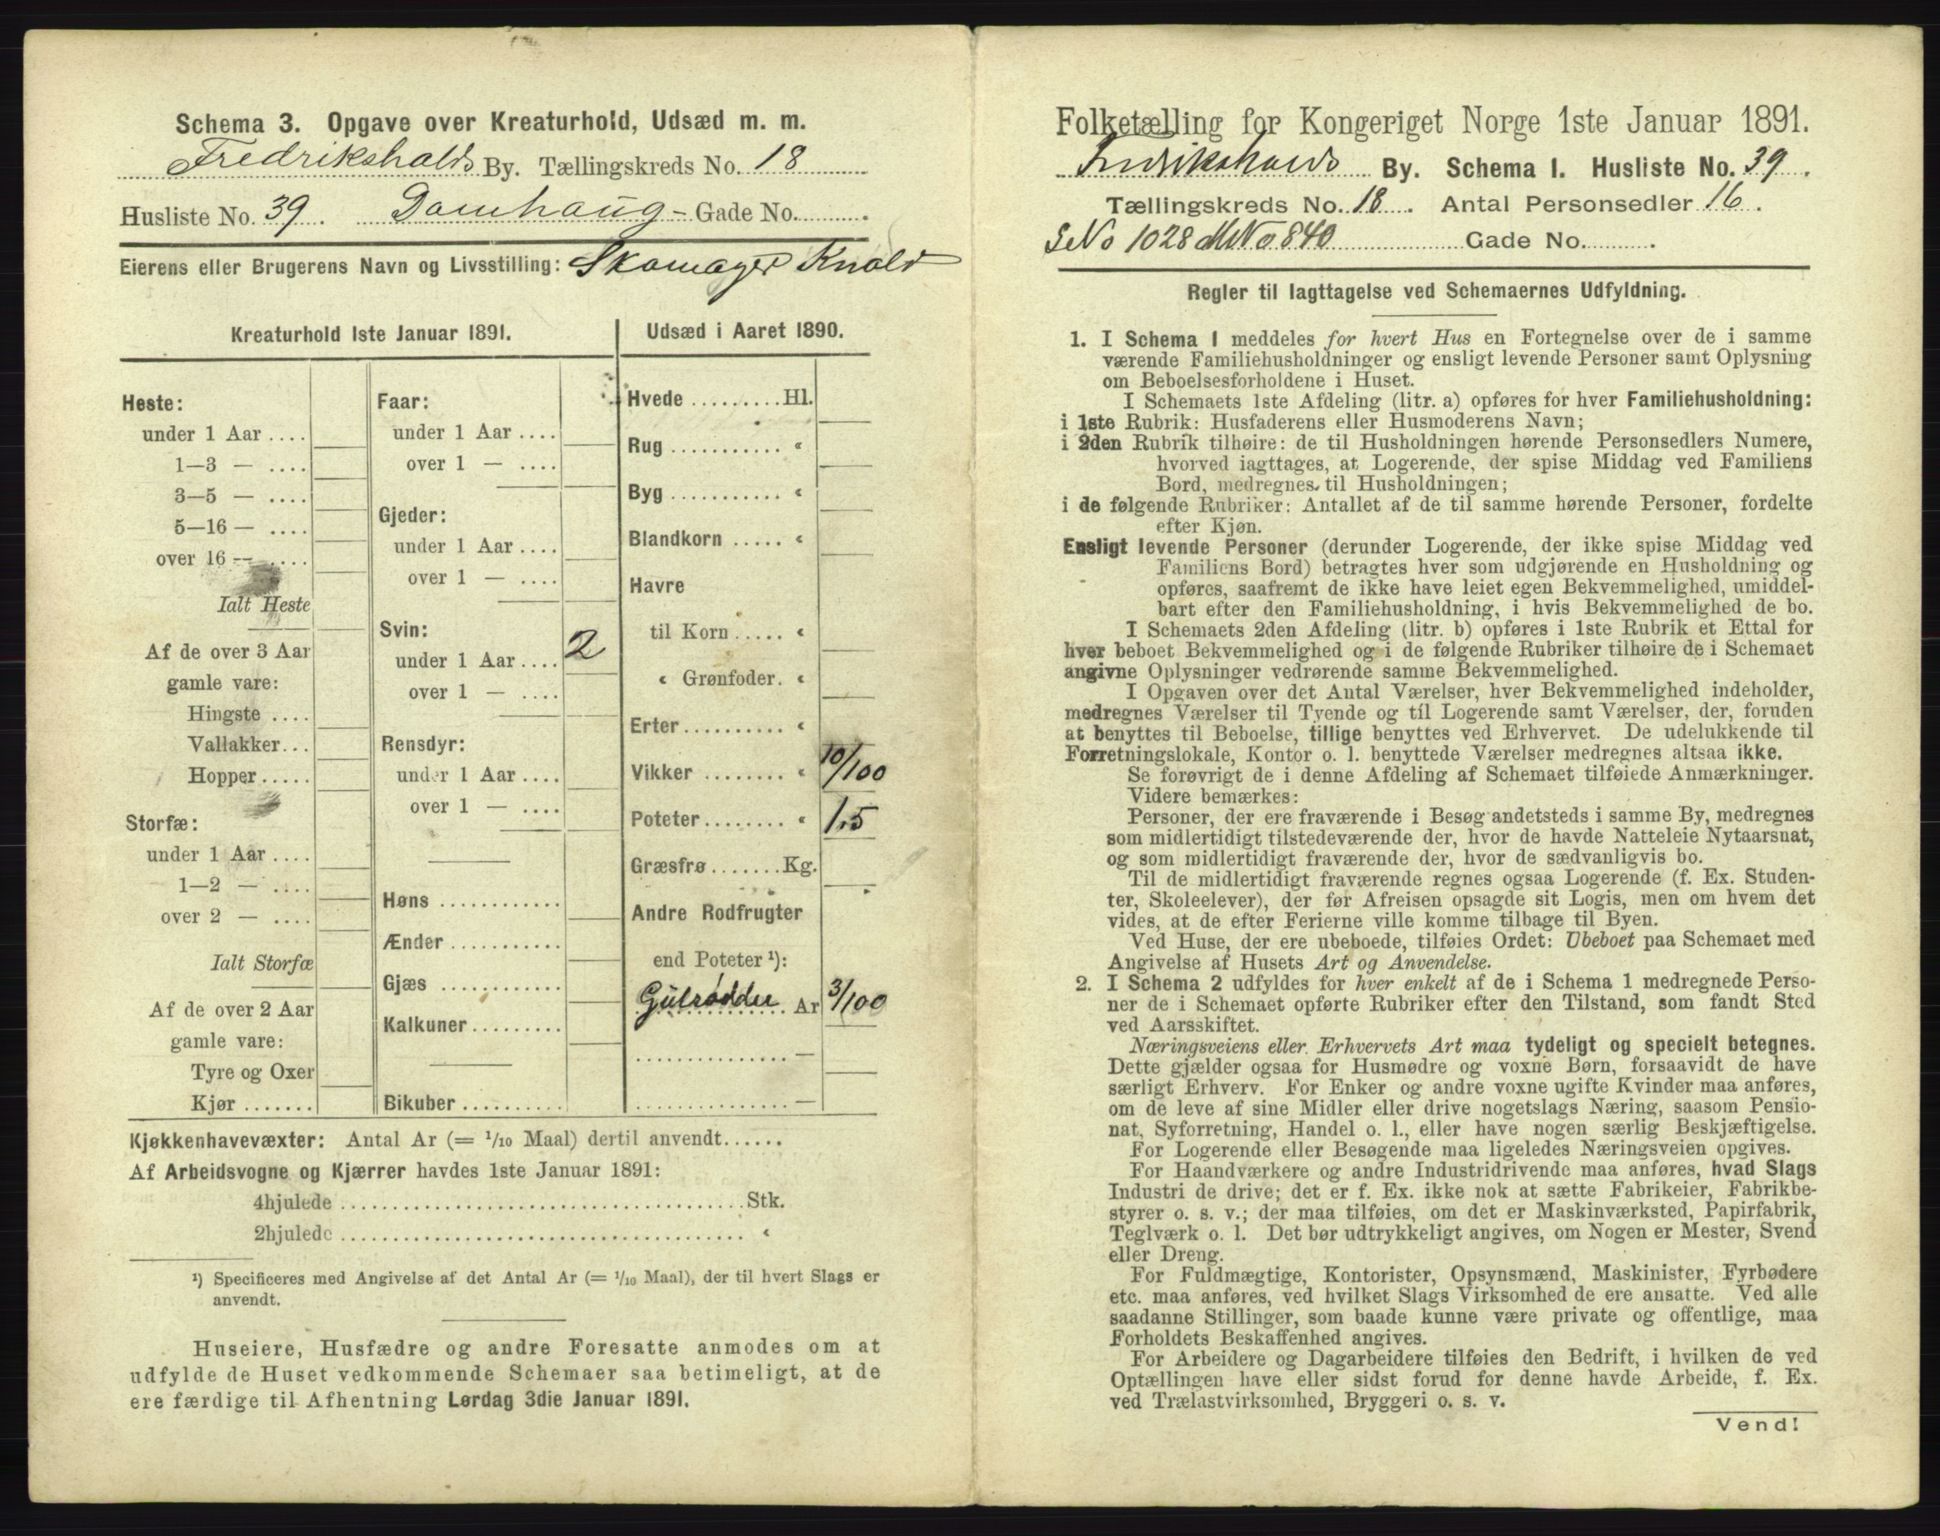 Schema 3. Opgave over Kreaturhold, Udsæd m. m.
Fredrikshalds By. Tællingskreds No. 18
Husliste No. 39. Damhaug - Gade No.
Eierens eller Brugerens Navn og Livsstilling: Skomager Knold
Kreaturhold 1ste Januar 1891.
Heste:
under 1 Aar ....
1—3 — ....
3—5 — ....
5—16 — ....
over 16 — ....
Ialt Heste
Af de over 3 Aar
gamle vare:
Hingste ....
Vallakker...
Hopper .....
Storfæ:
under 1 Aar ....
1—2 — ....
over 2 — ....
Ialt Storfæ
Af de over 2 Aar
gamle vare:
Tyre og Oxer
Kjør .......
Faar:
under 1 Aar ....
over 1 — ....
Gjeder:
under 1 Aar ....
over 1 — ....
Svin:
under 1 Aar .... 2
over 1 — ....
Rensdyr:
under 1 Aar ....
over 1 — ....
Høns ............
Ænder ...........
Gjæs ............
Kalkuner .........
Bikuber ..........
Udsæd i Aaret 1890.
Hvede .........Hl.
Rug ........... «
Byg ........... «
Blandkorn ..... «
Havre
til Korn ..... «
« Grønfoder. «
Erter .......... «
Vikker ........ « 10/100
Poteter ........ « 1,5
Græsfrø .......Kg.
Andre Rodfrugter
end Poteter ¹):
Gulrødder Ar 3/100
............... —
............... —
Kjøkkenhavevæxter: Antal Ar (= 1/10 Maal) dertil anvendt......
Af Arbeidsvogne og Kjærrer havdes 1ste Januar 1891:
4hjulede ..................................... Stk.
2hjulede ..................................... «
¹) Specificeres med Angivelse af det Antal Ar (= 1/10 Maal), der til hvert Slags er
anvendt.
Huseiere, Husfædre og andre Foresatte anmodes om at
udfylde de Huset vedkommende Schemaer saa betimeligt, at de
ere færdige til Afhentning Lørdag 3die Januar 1891.
Folketælling for Kongeriget Norge 1ste Januar 1891.
Fredrikshalds By. Schema I. Husliste No. 39.
Tællingskreds No. 18. Antal Personsedler 16.
SNo 1028 MNo 840 Gade No. .
Regler til Iagttagelse ved Schemaernes Udfyldning.
1. I Schema 1 meddeles for hvert Hus en Fortegnelse over de i samme
værende Familiehusholdninger og ensligt levende Personer samt Oplysning
om Beboelsesforholdene i Huset.
I Schemaets 1ste Afdeling (litr. a) opføres for hver Familiehusholdning:
i 1ste Rubrik: Husfaderens eller Husmoderens Navn;
i 2den Rubrik tilhøire: de til Husholdningen hørende Personsedlers Numere,
hvorved iagttages, at Logerende, der spise Middag ved Familiens
Bord, medregnes til Husholdningen;
i de følgende Rubriker: Antallet af de til samme hørende Personer, fordelte
efter Kjøn.
Ensligt levende Personer (derunder Logerende, der ikke spise Middag ved
Familiens Bord) betragtes hver som udgjørende en Husholdning og
opføres, saafremt de ikke have leiet egen Bekvemmelighed, umiddel-
bart efter den Familiehusholdning, i hvis Bekvemmelighed de bo.
I Schemaets 2den Afdeling (litr. b) opføres i 1ste Rubrik et Ettal for
hver beboet Bekvemmelighed og i de følgende Rubriker tilhøire de i Schemaet
angivne Oplysninger vedrørende samme Bekvemmelighed.
I Opgaven over det Antal Værelser, hver Bekvemmelighed indeholder,
medregnes Værelser til Tyende og til Logerende samt Værelser, der, foruden
at benyttes til Beboelse, tillige benyttes ved Erhvervet. De udelukkende til
Forretningslokale, Kontor o. l. benyttede Værelser medregnes altsaa ikke.
Se forøvrigt de i denne Afdeling af Schemaet tilføiede Anmærkninger.
Videre bemærkes:
Personer, der ere fraværende i Besøg andetsteds i samme By, medregnes
som midlertidigt tilstedeværende der, hvor de havde Natteleie Nytaarsnat,
og som midlertidigt fraværende der, hvor de sædvanligvis bo.
Til de midlertidigt fraværende regnes ogsaa Logerende (f. Ex. Studen-
ter, Skoleelever), der før Afreisen opsagde sit Logis, men om hvem det
vides, at de efter Ferierne ville komme tilbage til Byen.
Ved Huse, der ere ubeboede, tilføies Ordet: Ubeboet paa Schemaet med
Angivelse af Husets Art og Anvendelse.
2. I Schema 2 udfyldes for hver enkelt af de i Schema 1 medregnede Perso-
ner de i Schemaet opførte Rubriker efter den Tilstand, som fandt Sted
ved Aarsskiftet.
Næringsveiens eller Erhvervets Art maa tydeligt og specielt betegnes.
Dette gjælder ogsaa for Husmødre og voxne Børn, forsaavidt de have
særligt Erhverv. For Enker og andre voxne ugifte Kvinder maa anføres,
om de leve af sine Midler eller drive nogetslags Næring, saasom Pensio-
nat, Syforretning, Handel o. l., eller have nogen særlig Beskjæftigelse.
For Logerende eller Besøgende maa ligeledes Næringsveien opgives.
For Haandværkere og andre Industridrivende maa anføres, hvad Slags
Industri de drive; det er f. Ex. ikke nok at sætte Fabrikeier, Fabrikbe-
styrer o. s. v.; der maa tilføies, om det er Maskinværksted, Papirfabrik,
Teglværk o. l. Det bør udtrykkeligt angives, om Nogen er Mester, Svend
eller Dreng.
For Fuldmægtige, Kontorister, Opsynsmænd, Maskinister, Fyrbødere
etc. maa anføres, ved hvilket Slags Virksomhed de ere ansatte. Ved alle
saadanne Stillinger, som baade kunne være private og offentlige, maa
Forholdets Beskaffenhed angives.
For Arbeidere og Dagarbeidere tilføies den Bedrift, i hvilken de ved
Optællingen have eller sidst forud for denne havde Arbeide, f. Ex.
ved Trælastvirksomhed, Bryggeri o. s. v.
Vend!